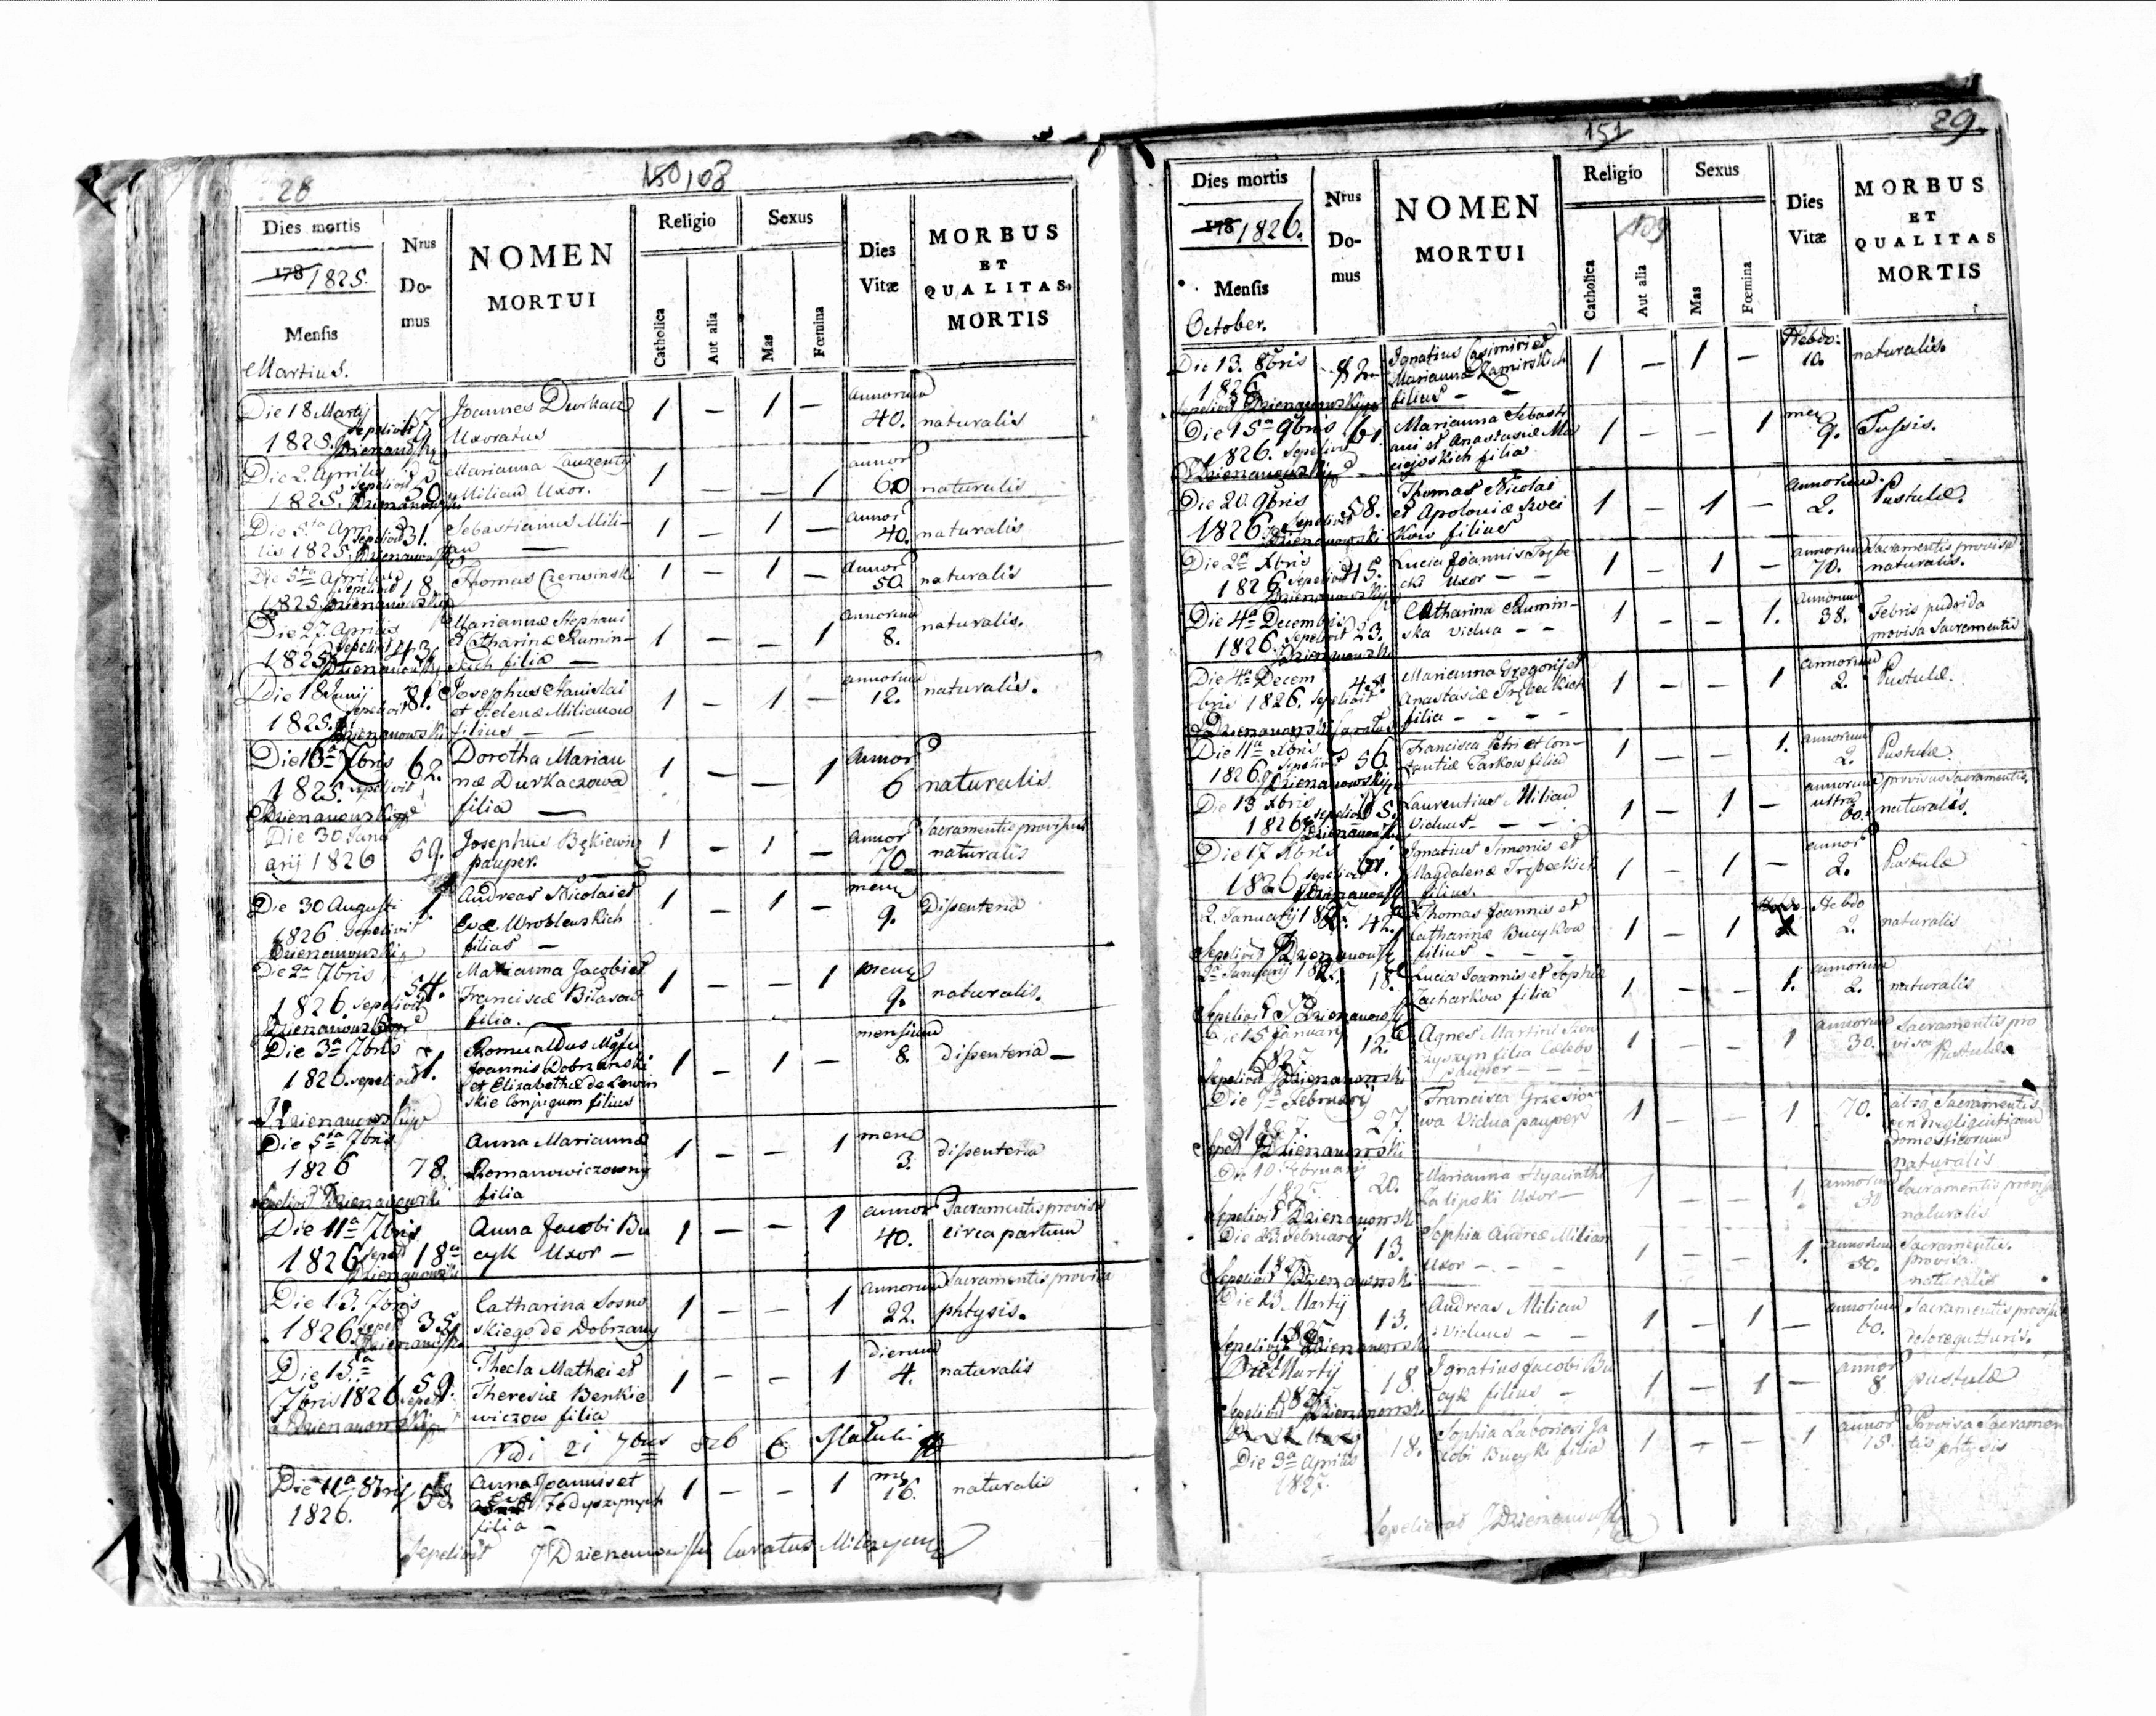 28
150 108
Dies mortis
178 1825.
Mensis
Martius.
Nrus
Do-
mus
NOMEN
MORTUI
Religio
Catholica
Aut alia
Sexus
Mas
Fœmina
Dies
Vitæ
MORBUS
ET
QUALITAS.
MORTIS
Die 18 Martij 17 Joannes Durkacz 1 — 1 — annorum
1825. Sepelivit Dzienanowski Uxoratus 40. naturalis
Die 2. Aprilis Marianna Laurentij 1 — — 1 annor
1825. Sepelivit Dzienanowski 50 Milian Uxor. 60 naturalis
Aprilis 31. Sebastianus Mili- 1 — 1 — annor
1825. Sepelivit Dzienanowski an — 40. naturalis
Die 5ta Aprilis 18. Thomas Czerwinski 1 — 1 — annor
1825. Sepelivit Dzienanowski 50. naturalis
Die 27. Aprilis Mariannæ Stephani
1825. Sepelivit 43. et Catharinæ Rumin- 1 — — 1 annorum
Dzienanowski skich filia — 8. naturalis.
Die 18 Junij 81. Josephus Stanislai
1825. Sepelivit et Helenæ Milianow 1 — 1 — annorum
Dzienanowski filius — — 12. naturalis.
Die 16a 7bris 62. Dorotha Marian 1 — — 1 annor
1825. Sepelivit næ Durkaczowa 6 naturalis
Dzienanowski filia —
Die 30 Janu 59. Josephus Bękiewicz 1 — 1 — annor Sacramentis provisus
arij 1826 pauper. 70. naturalis
Die 30 Augusti Andreas Nicolai et 1 — 1 — mens
1826 Sepelivit Evæ Wroblewskich 9. Dissenteria
Dzienanowski filius —
Die 2a 7bris 54. Marianna Jacobi et 1 — — 1 mens
1826. Sepelivit Franciscæ Bilasow 9. naturalis.
Dzienanowski filia. —
Die 3a 7bris Romualdus
1826. Sepelivit Joannis Dobrzanski 1 — 1 — mensium
et Elizabethæ de Lewin 8. dissenteria —
skie Conjugum filius
Dzienanowski
Die 5ta 7bris Anna Mariannæ 1 — — 1 mens
1826 78. Romanowiczowny 3. dissenteria
Sepelivit Dzienanowski filia
Die 11a 7bris Anna Jacobi Bu 1 — — 1 annor Sacramentis provisa
1826 Sepel 18a cyk Uxor — 40. circa partum
Dzienanowski
Die 13. 7bris Catharina Sosno 1 — — 1 annorum Sacramentis provisa
1826. Sepel 35. skiego de Dobrzany 22. phtysis.
Dzienanowski
Die 15ta Thecla Mathæi et 1 — — 1 dierum
7bris 1826 59. Theresiæ Benkie 4. naturalis
Dzienanowski wiczow filia
21 7bris 826
Die 11a 8bris 58. Anna Joannis et 1 — — 1
1826. Fedyszynych 16. naturalis
filia —
Sepelivit J Dzienanowski Curatus
151
29.
Dies mortis
178 1826.
Mensis
October.
Nrus
Do-
mus
NOMEN
MORTUI
Religio
109
Catholica
Aut alia
Sexus
Mas
Fœmina
Dies
Vitæ
MORBUS
ET
QUALITAS
MORTIS
Die 13. 8bris 82 Ignatius Casimiri et 1 — 1 — Hebdo:
1826 Mariannæ Zamirskich 10. naturalis.
Sepelivit Dzienanowski filius — —
Die 15ta 9bris 61. Marianna Sebasti 1 — — 1 mens
1826. Sepelivit ani et Anastasiæ Ma 9. Tussis.
Dzienanowski ciejoskich filia
Die 20. 9bris 58. Thomas Nicolai 1 — 1 — annorum.
1826. Sepelivit et Apoloniæ Kwei 2. Pustulæ.
Dzienanowski kow filius
Die 2a Xbris 45. Lucia Joannis Trębe 1 — 1 — annorum Sacramentis provisa
1826 Sepelivit cki Uxor — — 70. naturalis.
Dzienanowski
Die 4a Decembris Catharina Rumin- 1 — — 1. annorum
1826. Sepelivit 23. ska vidua — — 38. Febris pudrida
Dzienanowski provisa Sacramentis
Die 4a Decem Marianna Gregorij et 1 — — 1 annorum
bris 1826. Sepelivit Anastasiæ Trębeckich 2. Pustulæ.
Dzienanowski Curatus filia — — —
Die 11a Xbris 56. Francisca Petri et Con- 1 — — 1. annorum
1826 Sepelivit stantiæ Farkow filia 2. Pustulæ
Dzienanowski
Die 13 Xbris Laurentius Milian 1 — 1 — annorum provisus Sacramentis.
1826 Sepelivit viduus — — ultra 60. naturalis.
Dzienanowski
Die 17 Xbris 61. Ignatius Simonis et 1 — 1 — annor
1826 Sepelivit Magdalenæ Trębeckich 2. Pustulæ
Dzienanowski filius.
2. Januarij 1827. 42. Thomas Joannis et 1 — 1 Hebdo
Catharinæ Bucykow 2. naturalis
Sepelivit Dzienanowski filius — — —
Januarij 18. Lucia Joannis et Sophiæ 1 — — 1. annorum
Zacharkow filia 2. naturalis
Sepelivit J Dzienanowski
Die 15 Januarij 12. Agnes Martini 1 — — 1 annorum Sacramentis pro
1827. filia Cælebs 30. visa
Sepelivit Dzienanowski pauper — — Pustulæ
Die 7a Februarij Francisca Grzesio- 1 — — 1 70. Sacramentis
1827. 27. wa Vidua pauper negligentiam
Sepel Dzienanowski domesticorum
naturalis
Die 10 Februarij Marianna Hyacinthi 1 — — 1 annorum Sacramentis provisa
1827. 20. Zalipski Uxor — naturalis
Sepelivit Dzienanowski
Die 23 Februarij 13. Sophia Andreæ Milian 1 — — 1. annorum Sacramentis.
1827 Uxor — — — 50. provisa.
Sepelivit Dzienanowski naturalis
Die 23 Martij 13. Andreas Milian 1 — 1 — annorum Sacramentis provisus
1827 Viduus — — 60. dolore gutturis.
Sepelivit Dzienanowski
Die Martij 18. Ignatius Jacobi Bu 1 — 1 — annor
1827 cyk filius — 8 pustulæ
Sepelivit Dzienanowski
18. Sophia Laboriosi Ja 1 — — 1 annor Provisa Sacramen
Die 3a Aprilis cobi Bucyk filia 15. tis phtysis
1827.
Sepeliebat J Dzienanowski